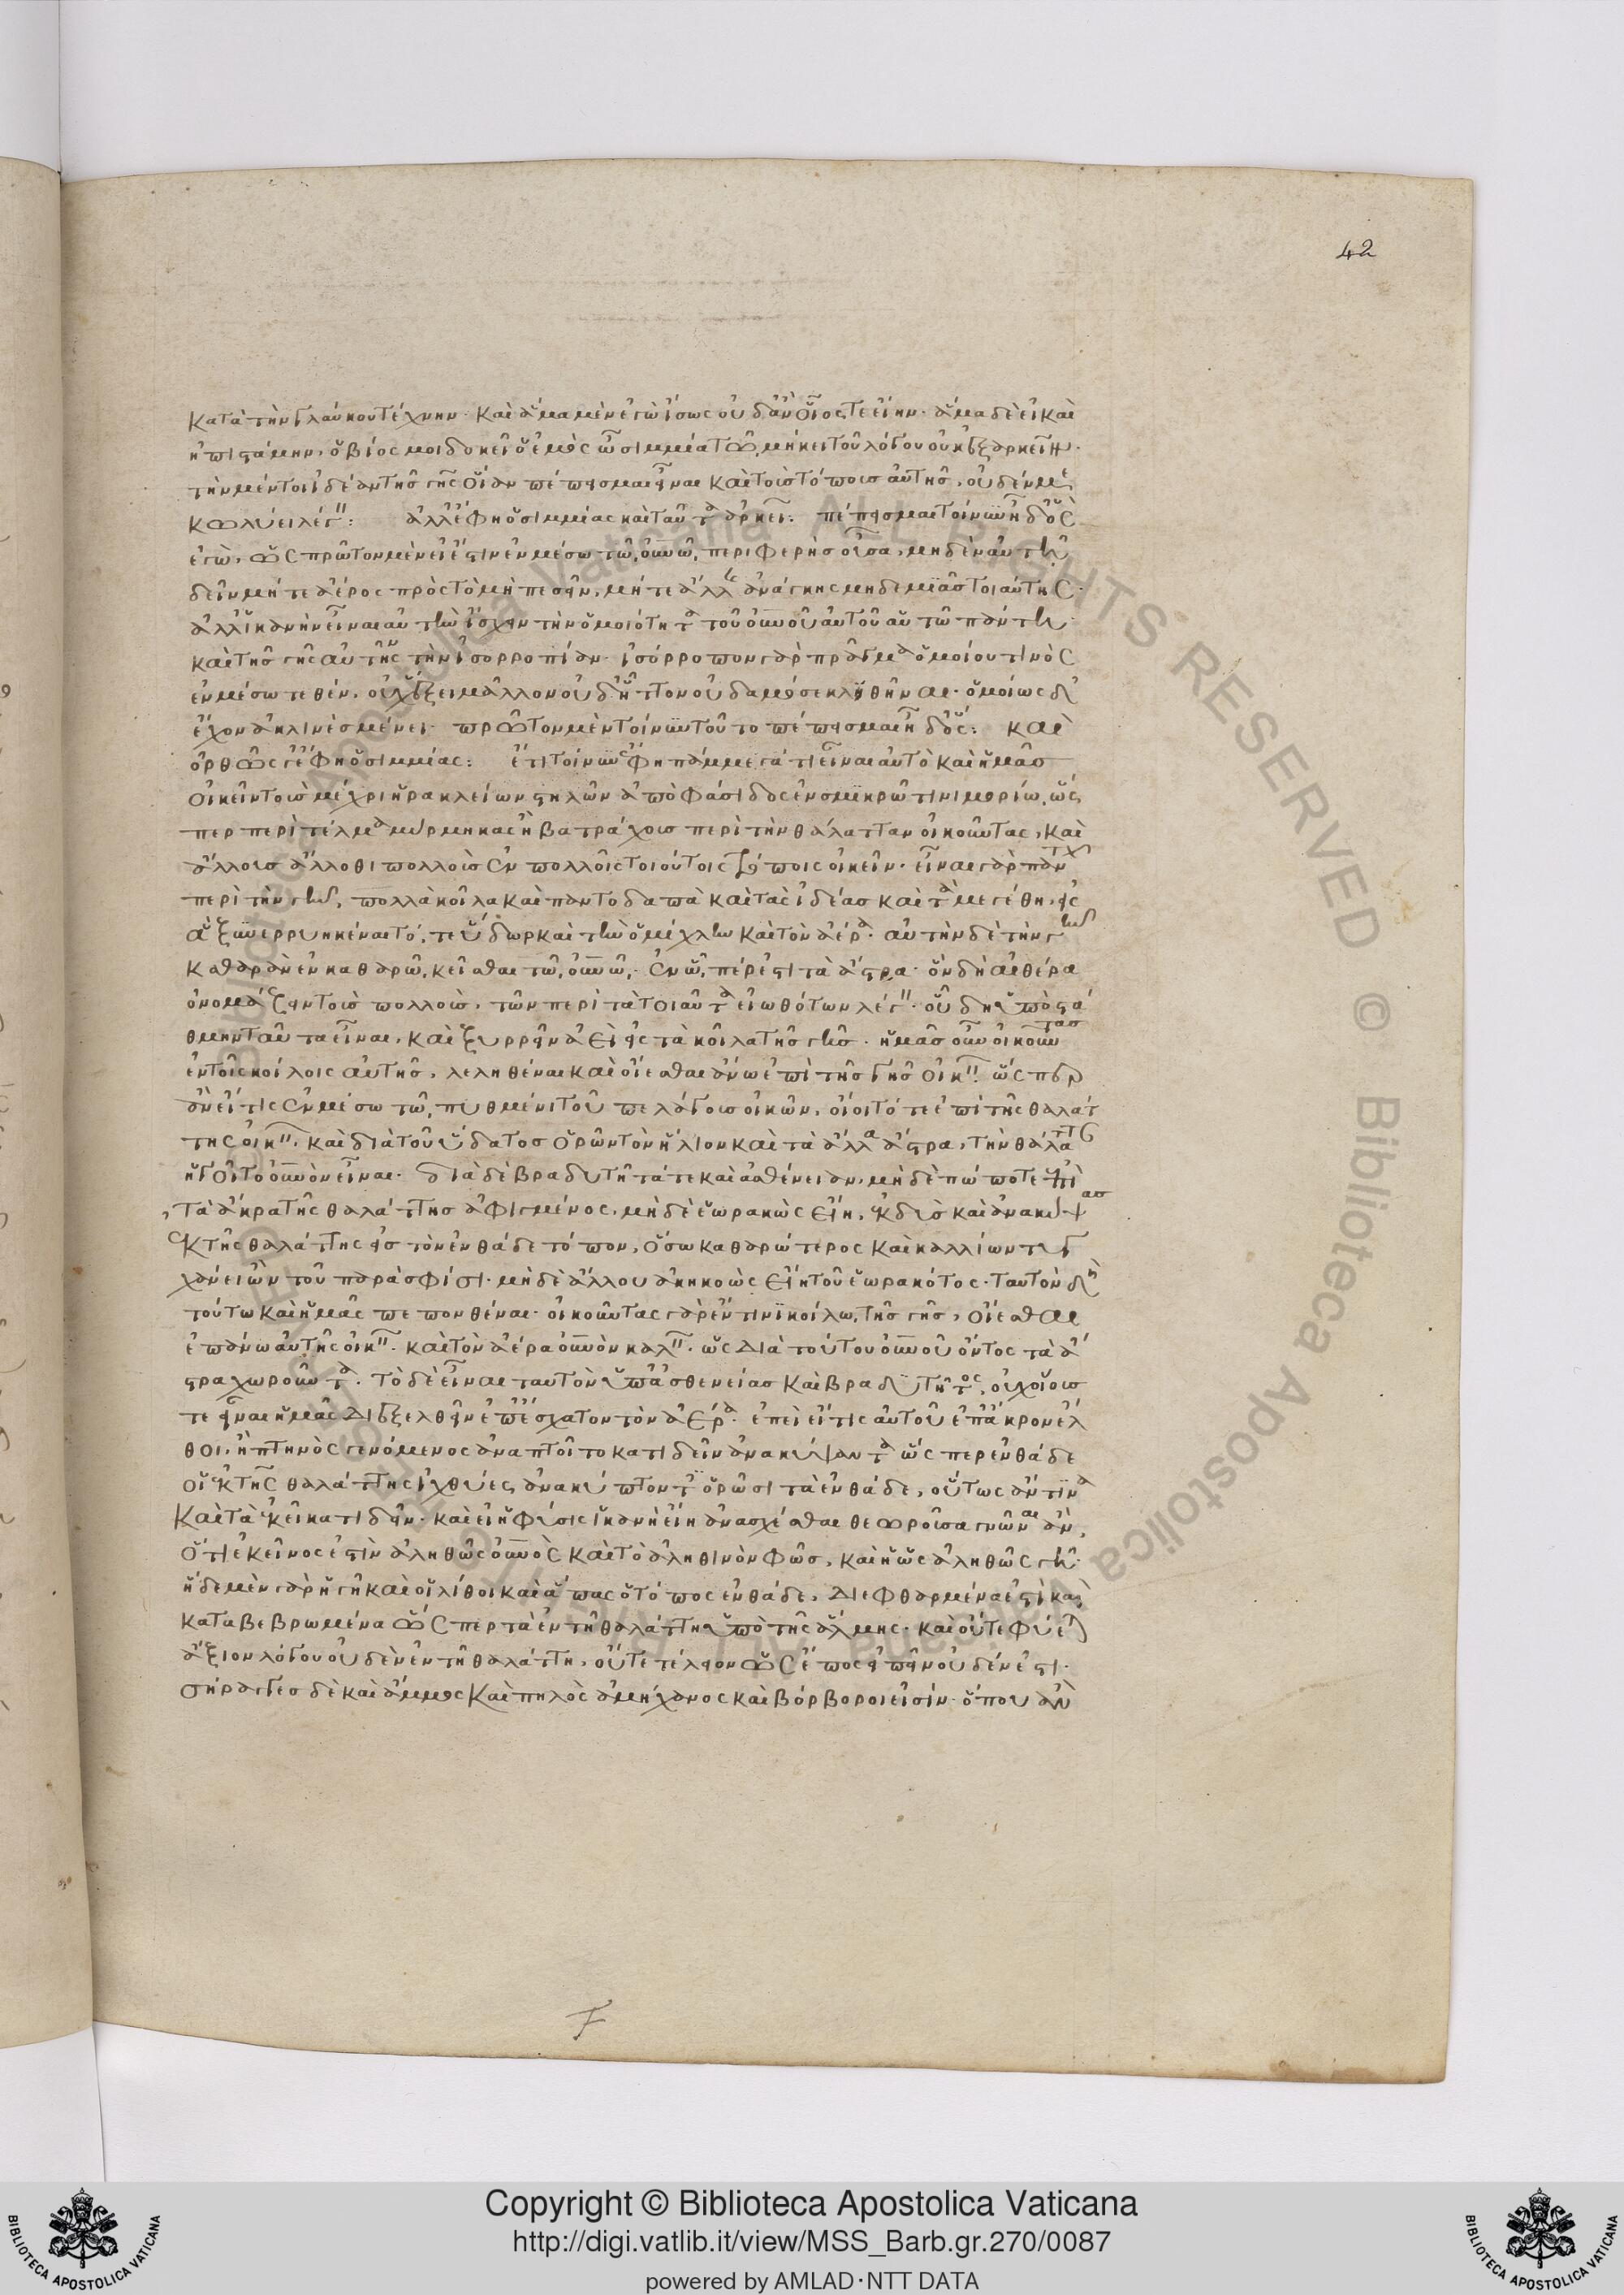 42
κατὰ τὴν γλαύκου τέχνην· καὶ ἅμα μὲν ἐγὼ ἴσως οὐδ' ἂν οἷός τε εἴην· ἅμα δὲ εἰ καὶ
ἠπιστάμην, ὁ βίος μοι δοκεῖ ὁ ἐμὸς ὦ σιμμία τῷ μήκει τοῦ λόγου οὐκ ἐξαρκεῖν·
τὴν μέντοι ἰδέαν τῆς γῆς οἵαν πέπεισμαι εἶναι καὶ τοὺς τόπους αὐτῆς, οὐδέν με
κωλύει λέγειν: ἀλλ' ἔφη ὁ σιμμίας καὶ ταῦτα ἀρκεῖ: πέπεισμαι τοίνυν ἦ δ' ὃς
ἐγὼ, ὡς πρῶτον μὲν εἰ ἔστιν ἐν μέσω τῶ οὐνῶ περιφερὴς οὖσα, μηδὲν αὐτῆ
δεῖν μήτε ἀέρος πρὸς τὸ μὴ πεσεῖν, μήτε ἄλλης ἀνάγκης μηδεμιᾶς τοιαύτης·
ἀλλ' ἱκανὴν εἶναι αὐτὴν ἴσχειν τὴν ὁμοιότητα τοῦ οὐνοῦ αὐτοῦ αὑτῶ πάντη
καὶ τῆς γῆς αὐτῆς τὴν ἰσορροπίαν· ἰσόρροπον γὰρ πρᾶγμα ὁμοίου τινὸς
ἐν μέσω τεθὲν, οὐχ ἕξει μᾶλλον οὐδ' ἧττον οὐδαμόσε κλιθῆναι· ὁμοίως δ'
ἔχον ἀκλινὲς μένει· πρῶτον μὲν τοίνυν τοῦτο πέπεισμαι ἦ δ' ὅς: καὶ
ὀρθῶς γε ἔφη ὁ σιμμίας: ἔτι τοίνυν ἔφη πάμμεγά τι εἶναι αὐτὸ καὶ ἡμᾶς
οἰκεῖν τοὺς μέχρι ἡρακλείων στηλῶν ἀπὸ φάσιδος ἐν σμικρῶ τινι μορίω, ὥς
περ περὶ τέλμα μύρμηκας ἢ βατράχους περὶ τὴν θάλατταν οἰκοῦντας, καὶ
ἄλλους ἄλλοθι πολλοὺς ἐν πολλοῖς τοιούτοις τόποις οἰκεῖν· εἶναι γὰρ πανταχῆ
περὶ τὴν γῆν, πολλὰ κοῖλα καὶ παντοδαπὰ καὶ τὰς ἰδέας καὶ τὰ μεγέθη, εἰς
ἃ ξυνερρυηκέναι τό, τε ὕδωρ καὶ τὴν ὁμίχλην καὶ τὸν ἀέρα· αὐτὴν δὲ τὴν γῆν
καθαρὰν ἐν καθαρῶ κεῖσθαι τῶ οὐνῶ, ἐν ᾧ πέρ ἐστι τὰ ἄστρα· ὃν δὴ αἰθέρα
ὀνομάζειν τοὺς πολλοὺς, τῶν περὶ τὰ τοιαῦτα εἰωθότων λέγειν· οὗ δὴ ὑποστά
θμην ταῦτα εἶναι, καὶ ξυρρεῖν ἀεὶ εἰς τὰ κοῖλα τῆς γῆς· ἡμᾶς οὖν οἰκοῦντας
ἐν τοῖς κοίλοις αὐτῆς, λεληθέναι καὶ οἴεσθαι ἄνω ἐπὶ τῆς γῆς οἰκεῖν· ὥς περ
ἂν εἴ τις ἐν μέσω τῶ πυθμένι τοῦ πελάγους οἰκῶν, οἴοιτό τε ἐπὶ τῆς θαλάτ
της οἰκεῖν, καὶ διὰ τοῦ ὕδατος ὁρῶν τὸν ἥλιον καὶ τὰ ἄλλα ἄστρα, τὴν θάλατταν
ἡγοῖτο οὐνὸν εἶναι· διὰ δὲ βραδυτῆτά τε καὶ ἀσθένειαν, μηδὲ πώποτε ἐπὶ
τὰ ἄκρα τῆς θαλάττης ἀφιγμένος, μηδὲ ἑωρακὼς εἴη, ἐκδὺς καὶ ἀνακύψας
ἐκ τῆς θαλάττης εἰς τὸν ἐνθάδε τόπον, ὅσω καθαρώτερος καὶ καλλίων τυγ
χάνει ὢν τοῦ παρὰ σφίσι· μηδὲ ἄλλου ἀκηκοὼς εἴη τοῦ ἑωρακότος· ταυτὸν δὴ
τούτω καὶ ἡμᾶς πεπονθέναι· οἰκοῦντας γὰρ ἔν τινι κοίλω τῆς γῆς, οἴεσθαι
ἐπάνω αὐτῆς οἰκεῖν· καὶ τὸν ἀέρα οὐνὸν καλεῖν· ὡς διὰ τούτου οὐνοῦ ὄντος τὰ ἄ
στρα χωροῦντα. τὸ δὲ εἶναι ταυτὸν ὑπ' ἀσθενείας καὶ βραδυτῆτος, οὐχ οἵους
τε εἶναι ἡμᾶς διεξελθεῖν ἐπ' ἔσχατον τὸν ἀέρα· ἐπεὶ εἴ τις αὐτοῦ ἐπ' ἄκρον ἔλ
θοι, ἢ πτηνὸς γενόμενος ἀναπτοῖτο κατιδεῖν ἀνακύψαντα ὥς περ ἐνθάδε
οἱ ἐκ τῆς θαλάττης ἰχθύες ἀνακύπτοντες ὁρῶσι τὰ ἐνθάδε, οὕτως ἄν τινα
καὶ τὰ ἐκεῖ κατιδεῖν· καὶ εἰ ἡ φύσις ἱκανὴ εἴη ἀνασχέσθαι θεωροῦσα γνῶναι ἂν,
ὅτι ἐκεῖνος ἐστὶν ἀληθῶς οὐνὸς καὶ τὸ ἀληθινὸν φῶς, καὶ ἡ ὡς ἀληθῶς γῆ·
ἥδε μὲν γὰρ ἡ γῆ καὶ οἱ λίθοι καὶ ἅπας ὁ τόπος ἐνθάδε, διεφθαρμένα ἐστὶ καὶ
καταβεβρωμένα ὥς περ τὰ ἐν τῆ θαλάττη ὑπὸ τῆς ἅλμης· καὶ οὔτε φύε
ἄξιον λόγου οὐδὲν ἐν τῆ θαλάττη, οὔτε τέλειον ὡς ἔπος εἰπεῖν οὐδέν ἐστι·
σήραγγες δὲ καὶ ἄμμος καὶ πηλὸς ἀμήχανος καὶ βόρβοροι εἰσίν· ὅπου ἂν
Copyright © Biblioteca Apostolica Vaticana
http://digi.vatlib.it/view/MSS_Barb.gr.270/0087
powered by AMLAD·NTT DATA